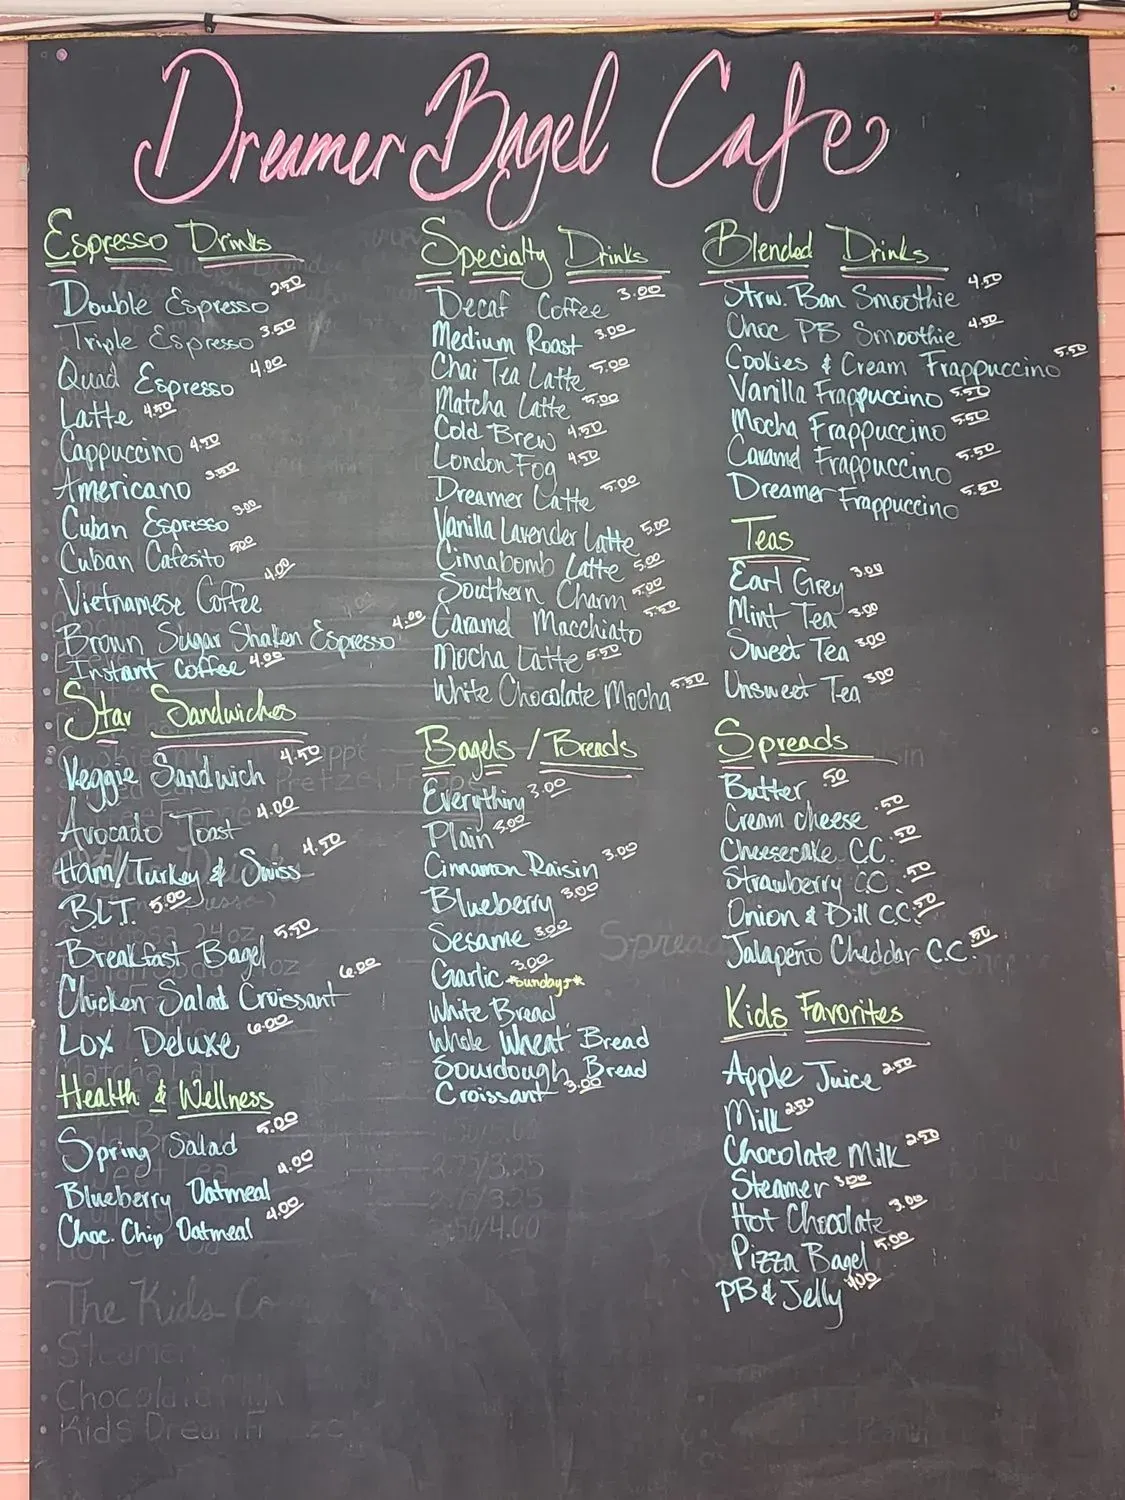 Dreamer Bagel Cafe
Espresso Drinks
Double Espresso 2.50
Triple Espresso 3.50
Quad Espresso 4.00
Latte 4.50
Cappuccino 4.50
Americano 3.50
Cuban Espresso 3.00
Cuban Cafesito 5.00
Vietnamese Coffee 4.00
Brown Sugar Shaken Espresso 4.00
Instant Coffee 4.00
Star Sandwiches
Veggie Sandwich 4.50
Avocado Toast 4.00
Ham/Turkey & Swiss 4.50
B.L.T. 5.00
Breakfast Bagel 5.50
Chicken Salad Croissant 6.00
Lox Deluxe 6.00
Health & Wellness
Spring Salad 5.00
Blueberry Oatmeal 4.00
Choc. Chip Oatmeal 4.00
The Kids Co
Steamer
Chocolate Milk
Kids Dream
Specialty Drinks
Decaf Coffee 3.00
Medium Roast 3.00
Chai Tea Latte 5.00
Matcha Latte 5.00
Cold Brew 4.50
London Fog 4.50
Dreamer Latte 5.00
Vanilla Lavender Latte 5.00
Cinnabomb Latte 5.00
Southern Charm 5.00
Caramel Macchiato 5.50
Mocha Latte 5.50
White Chocolate Mocha 5.50
Bagels / Breads
Everything 3.00
Plain 3.00
Cinnamon Raisin 3.00
Blueberry 3.00
Sesame 3.00
Garlic 3.00 *Sundays*
White Bread
Whole Wheat Bread
Sourdough Bread
Croissant 3.00
Blended Drinks
Strw. Ban Smoothie 4.50
Choc PB Smoothie 4.50
Cookies & Cream Frappuccino 5.50
Vanilla Frappuccino 5.50
Mocha Frappuccino 5.50
Caramel Frappuccino 5.50
Dreamer Frappuccino 5.50
Teas
Earl Grey 3.00
Mint Tea 3.00
Sweet Tea 3.00
Unsweet Tea 3.00
Spreads
Butter .50
Cream cheese .50
Cheesecake C.C. .50
Strawberry C.C. .50
Onion & Dill C.C. .50
Jalapeño Cheddar C.C. .50
Kids Favorites
Apple Juice 2.50
Milk 2.50
Chocolate Milk 2.50
Steamer 3.00
Hot Chocolate 3.00
Pizza Bagel 5.00
PB & Jelly 4.00